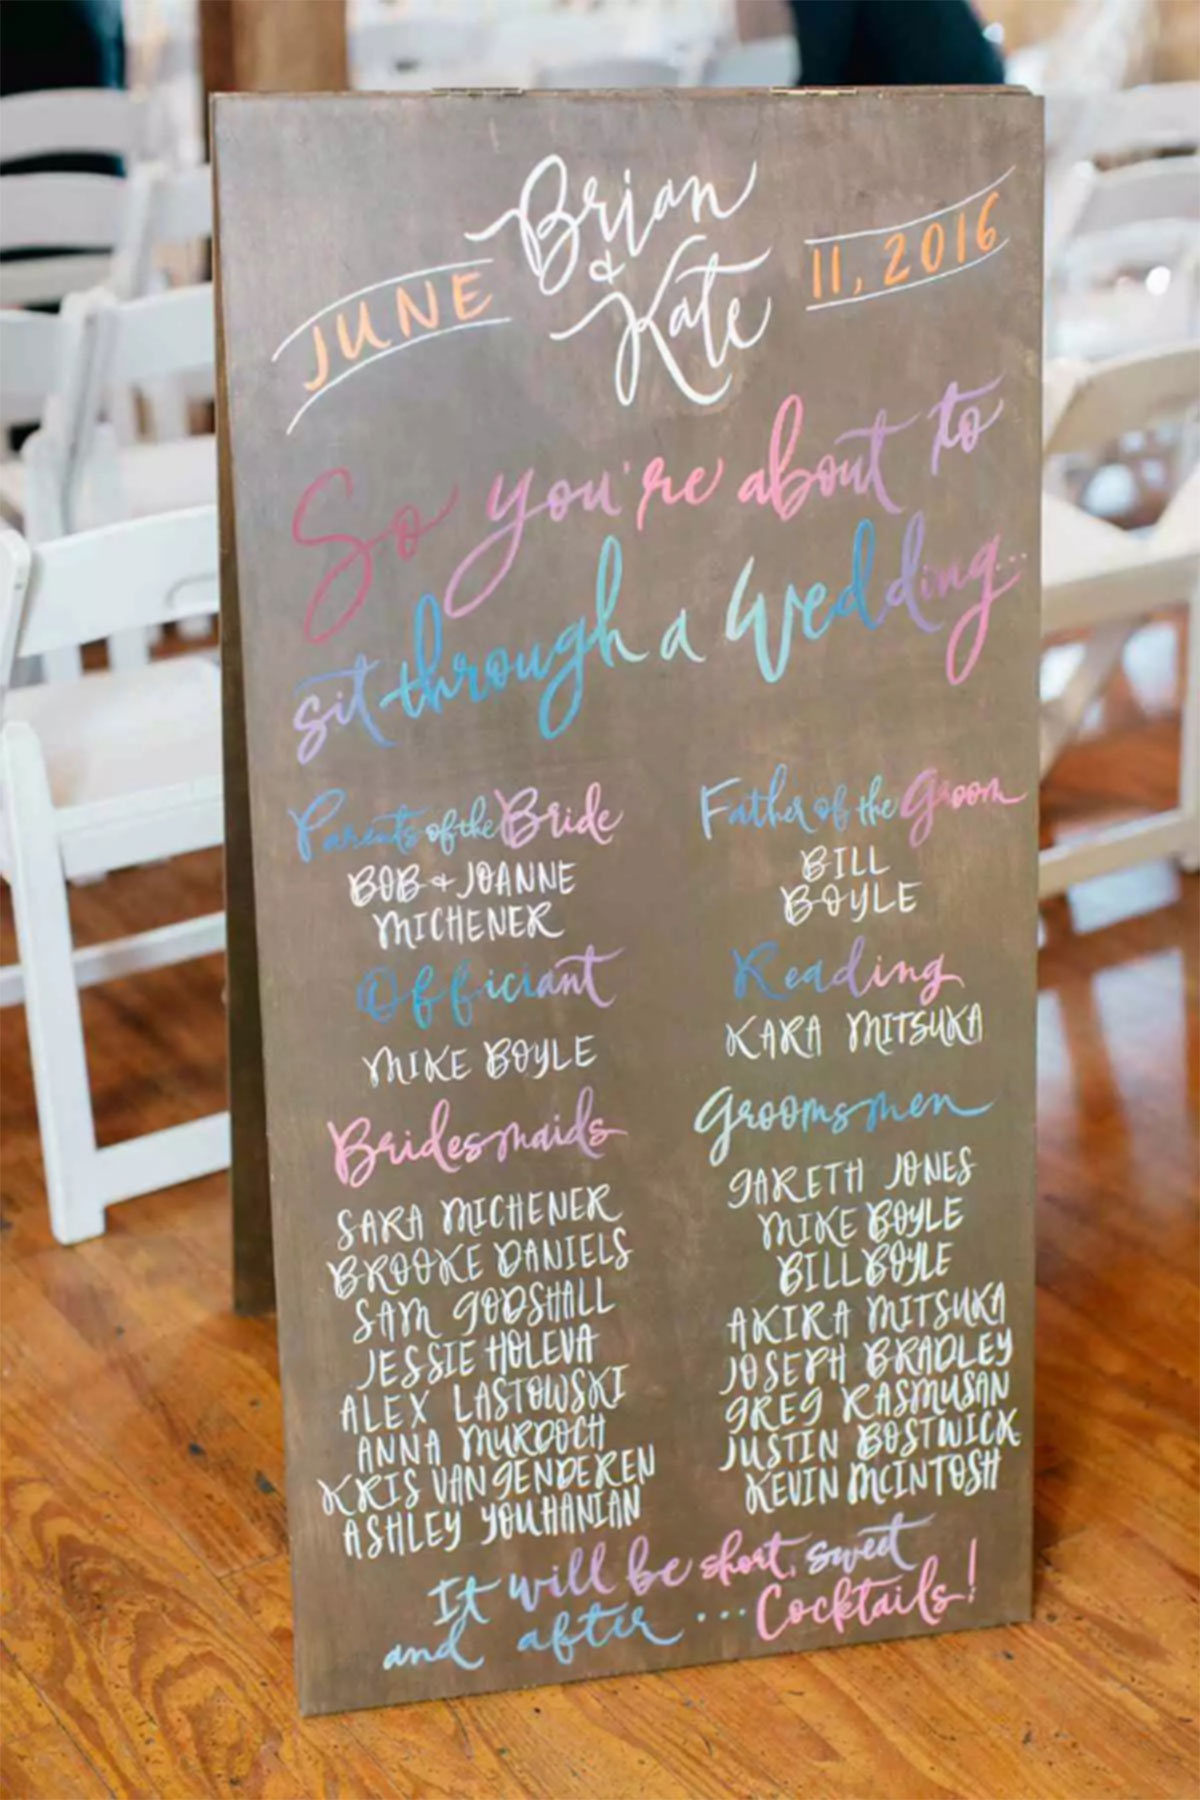 Brian
&
Kate
JUNE 11, 2016
So you're about to
sit through a Wedding...
Parents of the Bride
BOB & JOANNE
MICHENER
Father of the Groom
BILL
BOYLE
Officiant
MIKE BOYLE
Reading
KARA MITSUKA
Bridesmaids
SARA MICHENER
BROOKE DANIELS
SAM GODSHALL
JESSIE HOLEVA
ALEX LASTOWSKI
ANNA MURDOCH
KRIS VAN GENDEREN
ASHLEY YOUHANIAN
Groomsmen
GARETH JONES
MIKE BOYLE
BILL BOYLE
AKIRA MITSUKA
JOSEPH BRADLEY
GREG RASMUSAN
JUSTIN BOSTWICK
KEVIN MCINTOSH
It will be short, sweet
and after ... Cocktails!